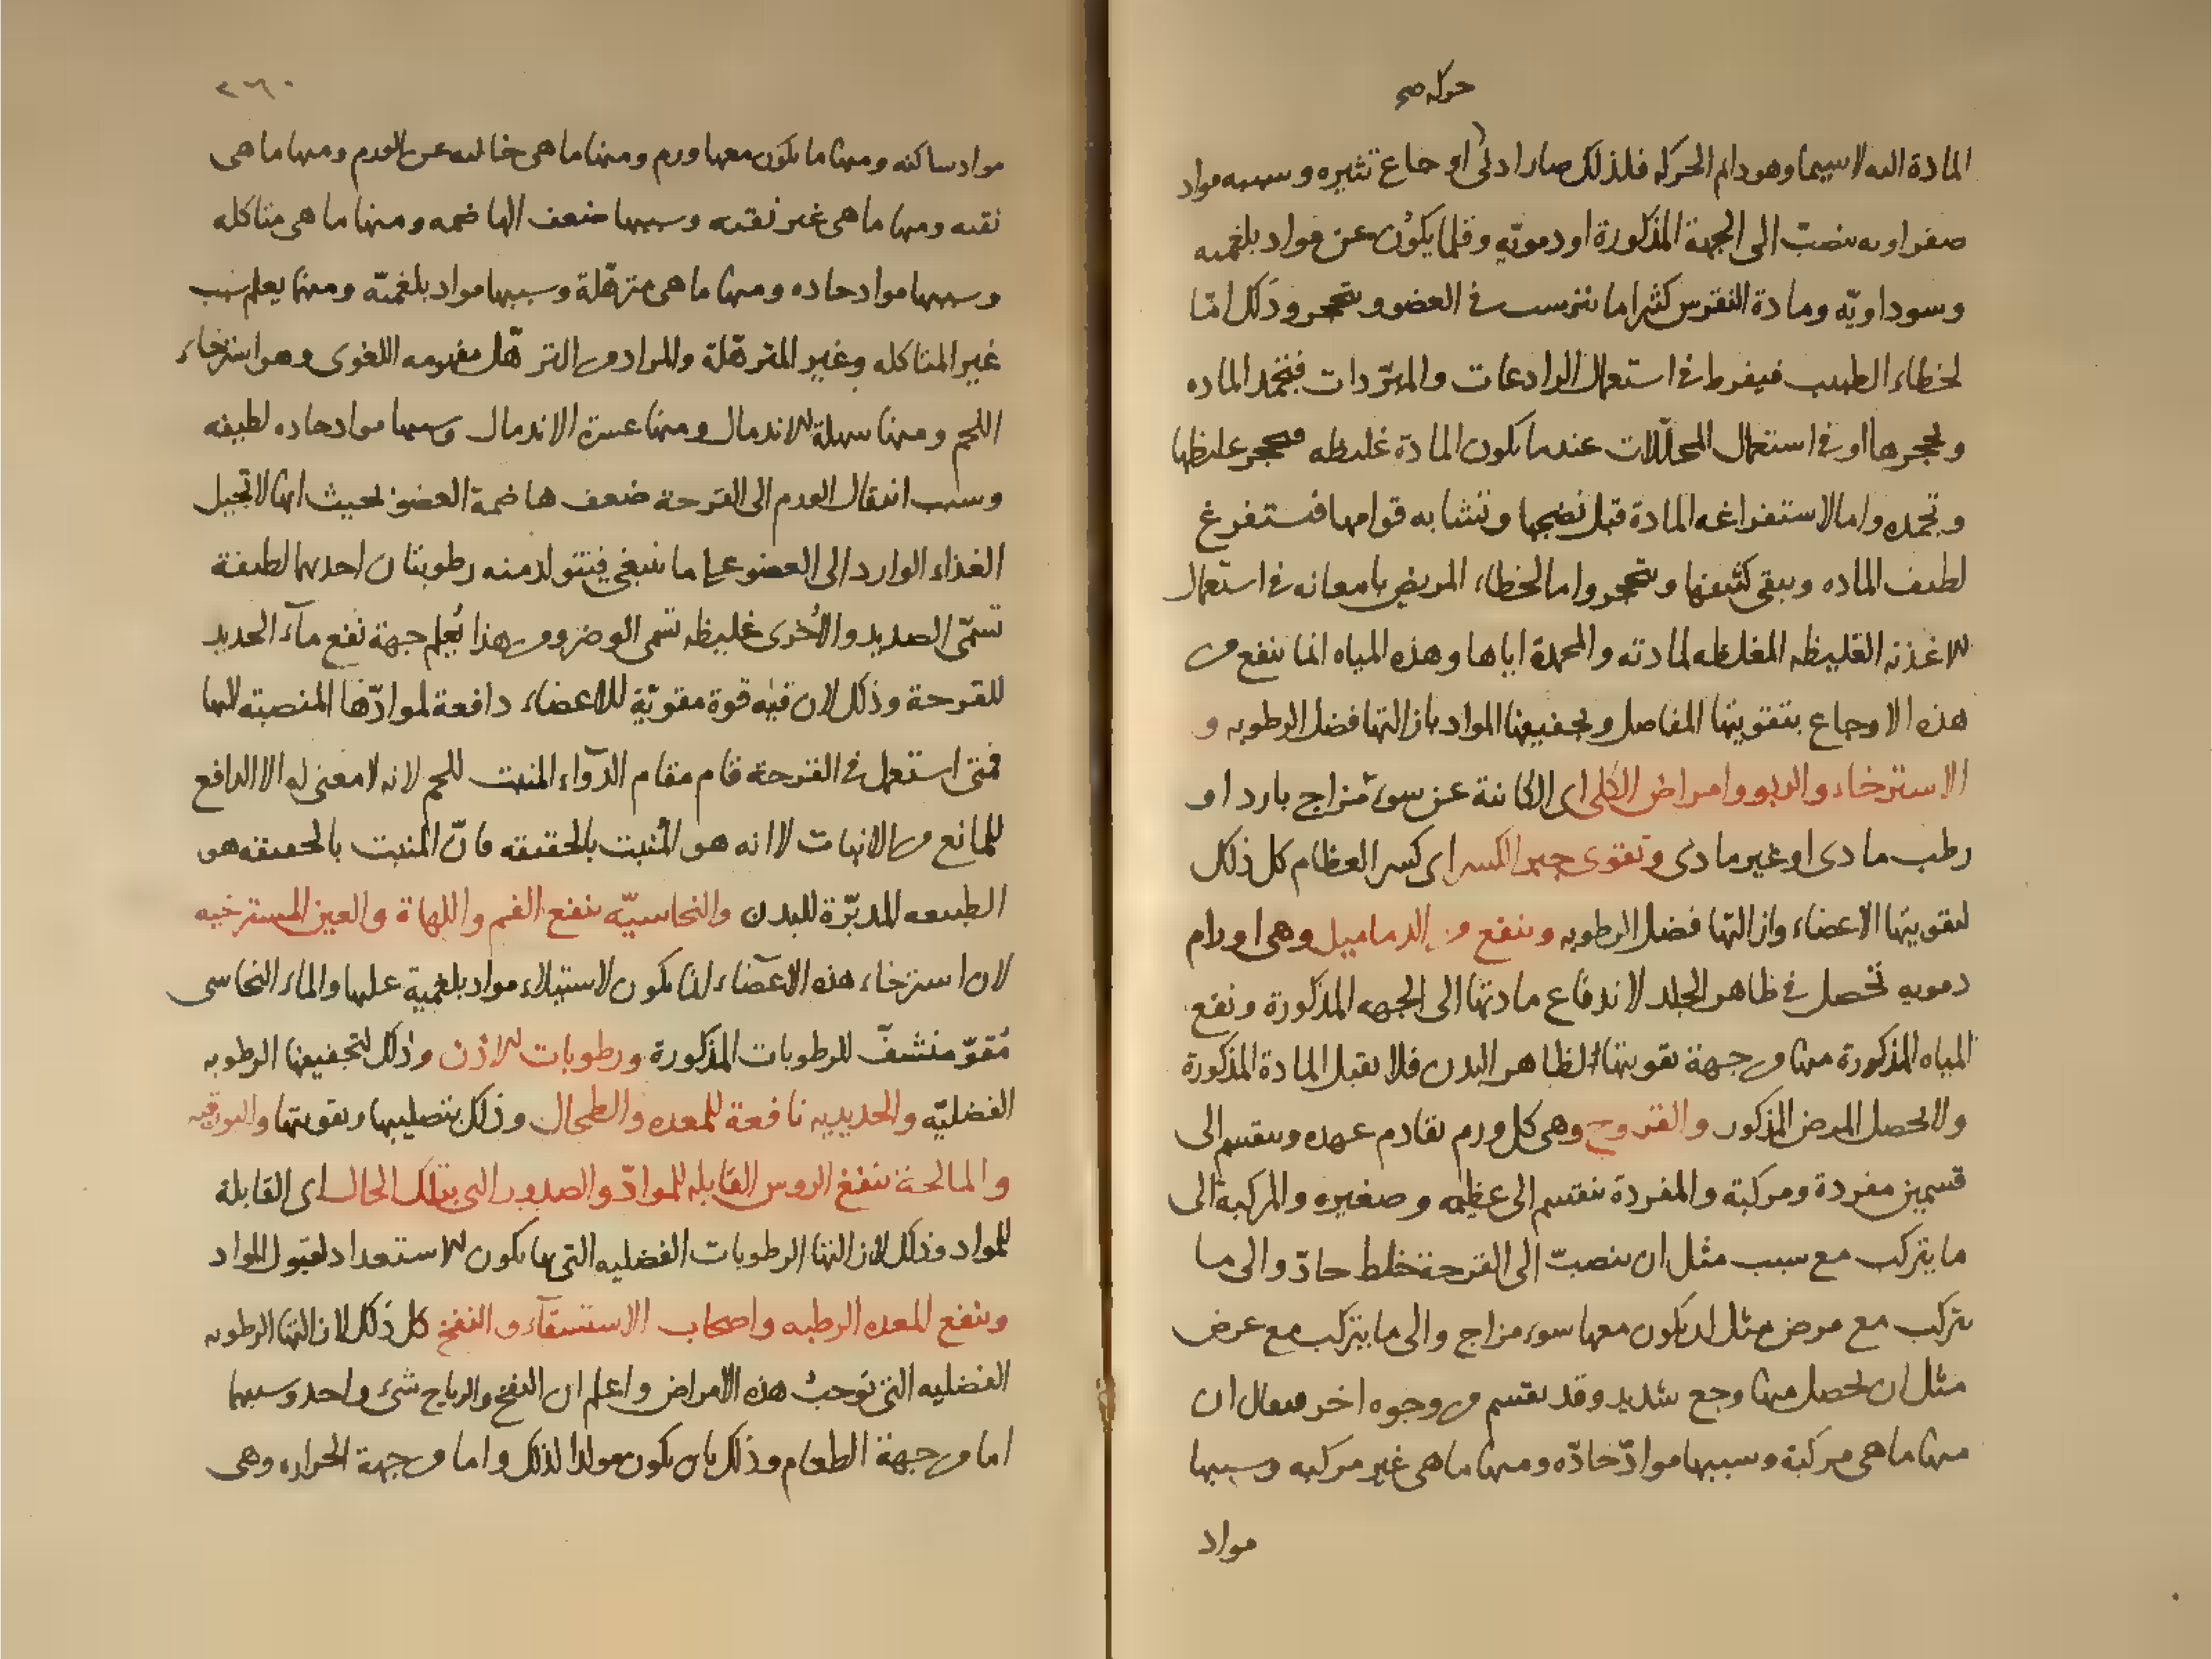 حركه صح
المادة اليه لاسيما وهو دايم الحركه فلذلك صار ادنى اوجاع تثيره وسببه مواد
صفراويه تنصبّ الى الجهة المذكورة او دمويّه وقلما يكون عن مواد بلغميه
وسوداويّه ومادة النقرس كثيرا ما تترسب في العضو وتتحجر وذلك امّا
لخطاء الطبيب فيفرط في استعمال الرادعات والمبرّدات فتجمد الماده
وتحجرها او في استعمال المحلّلات عندما يكون المادة غليظه فيتحجر غليظها
وتجمده واما لاستفراغه المادة قبل نضجها وتشابه قوامها فتستفرغ
لطيف الماده ويبقى كثيفها وتتحجر واما لخطاء المريض بامعانه في استعمال
الاغذية الغليظه المغلظه لمادته والمجمدة اياها وهذه المياه انما تنفع من
هذه الاوجاع بتقويتها المفاصل وتجفيفها المواد بازالتها فضل الرطوبه و
الاسترخاء والربو وامراض الكلى اى الكائنة عن سوء مزاج بارد او
رطب مادى او غير مادى وتقوى جبر الكسر اى كسر العظام كل ذلك
لتقويتها الاعضاء وازالتها فضل الرطوبه وينفع من الدماميل وهى اورام
دمويه تحصل في ظاهر الجلد لاندفاع مادتها الى الجهه المذكورة ونفع
المياه المذكورة منها من جهة تقويتها لظاهر البدن فلا يقبل المادة المذكورة
ولا يحصل المرض المذكور والقروح وهى كل ورم تقادم عهده وينقسم الى
قسمين مفردة ومركبة والمفردة تنقسم الى عظيمه وصغيره والمركبة الى
ما يتركب مع سبب مثل ان ينصبّ الى القرحة خلط حادّ والى ما
يتركب مع مرض مثل ان يكون معها سوء مزاج والى ما يتركب مع عرض
مثل ان يحصل منها وجع شديد وقد تقسم من وجوه اخر فيقال ان
منها ما هى مركبة وسببها موادّ حادّه ومنها ما هى غير مركبه وسببها
مواد
٢٦٠
مواد ساكنه ومنها ما يكون معها ورم ومنها ما هى خاليه عن الورم ومنها ما هى
نقيه ومنها ما هى غير نقيه وسببها ضعف الهاضمه ومنها ما هى متاكله
وسببها مواد حاده ومنها ما هى مترهّلة وسببها مواد بلغميّه ومنها يعلم سبب
غير المتاكله وغير المترهّلة والمراد من الترهّل مفهومه اللغوى وهو استرخاء
اللحم ومنها سهلة الاندمال ومنها عسرة الاندمال وسببها مواد حاده لطيفه
وسبب انتقال الورم الى القرحة ضعف هاضمة العضو بحيث انها لا تحيل
الغذاء الوارد الى العضو على ما ينبغى فيتولد منه رطوبتان احديهما لطيفة
تسمّى الصديد والاُخرى غليظه تسمى الوضر ومن هذا يُعلم جهة نفع مآء الحديد
للقرحة وذلك لان فيه قوة مقويّة للاعضاء دافعة لموادّها المنصبّه اليها
فمتى استعمل في القرحة قام مقام الدوآء المنبت للحم لانه لا معنى له الا الدافع
للمانع من الانبات لا انه هو المُنبت بالحقيقه فانّ المنبت بالحقيقه هو
الطبيعه المدبّرة للبدن والنحاسيّه ينفع الفم واللهاة والعين المسترخيه
لان استرخاء هذه الاعضآء انما يكون لاستيلاء مواد بلغمية عليها والماء النحاسى
مُقوّ منشفّ للرطوبات المذكورة ورطوبات الاذن وذلك لتجفيفها الرطوبه
الفضليّه والحديديه نافعة للمعده والطحال وذلك بتصليبها وتقويتها والبورقيه
والمالحة تنفع الروس القابله للموادّ والصدور التى بتلك الحال اى القابلة
للمواد وذلك لازالتها الرطوبات الفضليه التى بها يكون الاستعداد لقبول المواد
وينفع المعده الرطبه واصحاب الاستسقآء والنفخ كل ذلك لازالتها الرطوبه
الفضليه التى توجبُ هذه الامراض واعلم ان النفخ والرياح شىء واحد وسببها
اما من جهة الطعام وذلك بان يكون مولدا لذلك واما من جهة الحراره وهى